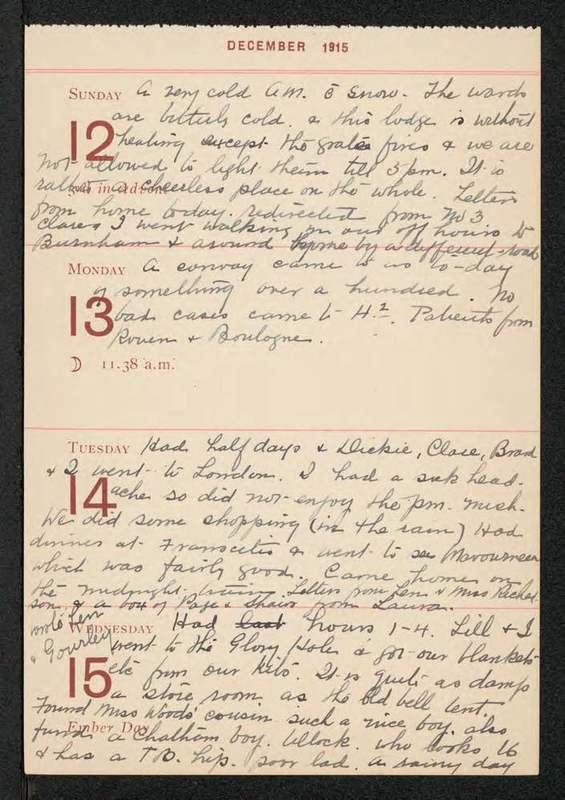 DECEMBER 1915
SUNDAY A very cold A.M. c̄ snow. The wards
12 are bitterly cold. & this lodge is without
heating except the grates fires & we are
not allowed to light them till 5 pm. It is
3rd in Advent
rather a cheerless place on the whole. Letters
from home today. redirected from No 3
Clares I went walking in our off hours to
Burnham & around home by a different road
MONDAY A convoy came to us to-day
13 of something over a hundred. No
bad cases came to H2. Patients from
Rouen & Boulogne.
☽ 11.38 a.m.
TUESDAY Had half days & Dickie, Clare, Brad
& I went to London. I had a sick head-
14 ache so did not enjoy the pm. much.
We did some shopping (in the rain) Had
dinner at & went to see Mavourneen
which was fairly good. Came home on
the midnight train. Letters from Len & Miss Richard
son, & a box of Page & Shaws from Laura.
wrote Len
& Gourley
WEDNESDAY Had last hours 1-4. Lill & I
15 went to the Glory Hole & got our blankets
etc from our kits. It is quite as damp
a store room as the old bell tent.
Found Miss Woods' cousin such a nice boy. also
Ember Day
found a Chatham boy. Ullock. who looks 16
& has a TB. hip. poor lad. A rainy day